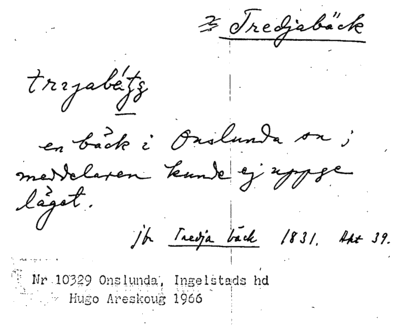 Tredjabäck
en bäck i Onslunda sn;
meddelaren kunde ej uppge
läget.
jfr Tredja bäck 1831. Akt 39.
Nr 10329 Onslunda, Ingelstads hd
Hugo Areskoug 1966